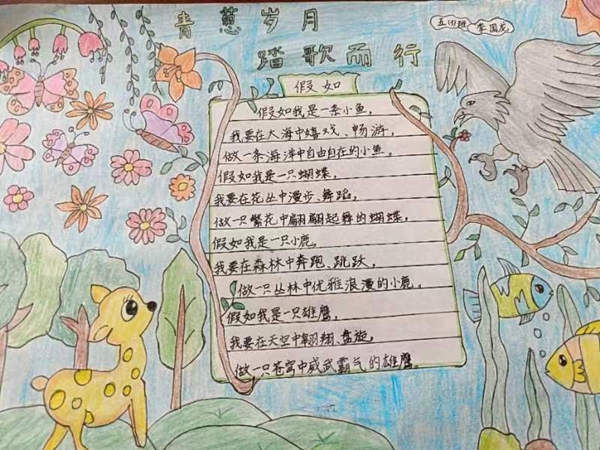 青葱岁月
踏歌而行
五(4)班 李国龙
假如
假如我是一条小鱼，
我要在大海中嬉戏、畅游，
做一条海洋中自由自在的小鱼。
假如我是一只蝴蝶，
我要在花丛中漫步、舞蹈，
做一只繁花中翩翩起舞的蝴蝶，
假如我是一只小鹿，
我要在森林中奔跑、跳跃，
做一只丛林中优雅浪漫的小鹿，
假如我是一只雄鹰，
我要在天空中翱翔、盘旋，
做一只苍穹中威武霸气的雄鹰。